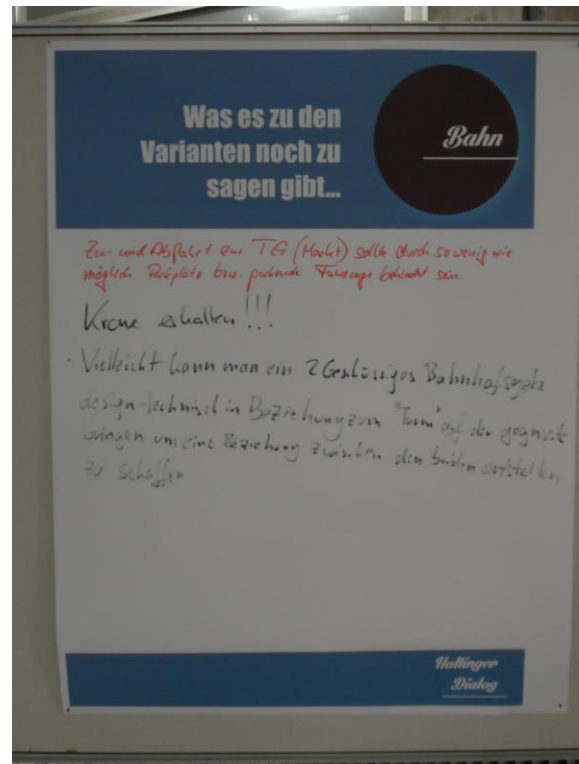 Was es zu den
Varianten noch zu
sagen gibt...
Bahn
Zu- und Abfahrt zur TG (Markt) sollte durch so wenig wie
möglich Parkplätze bzw. parkende Fahrzeuge behindert sein.
Krone erhalten!!!
- Vielleicht kann man ein 2 Geschossiges
design-technisch in Beziehung zum "Turm" auf der
bringen um eine Beziehung zwischen den beiden
zu schaffen
Haltinger
Dialog